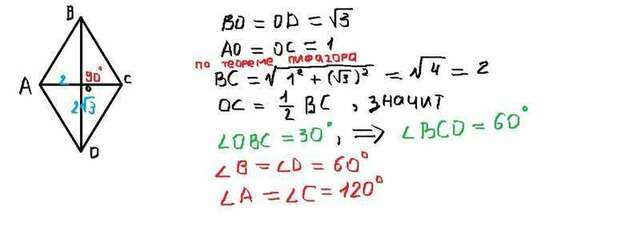 B
A
2
90°
C
o
2√3
D
BO = OD = √3
AO = OC = 1
по теореме пифагора
BC = √1² + (√3)² = √4 = 2
OC = 1/2 BC, значит
∠OBC = 30°, ⇒ ∠BCO = 60°
∠B = ∠D = 60°
∠A = ∠C = 120°